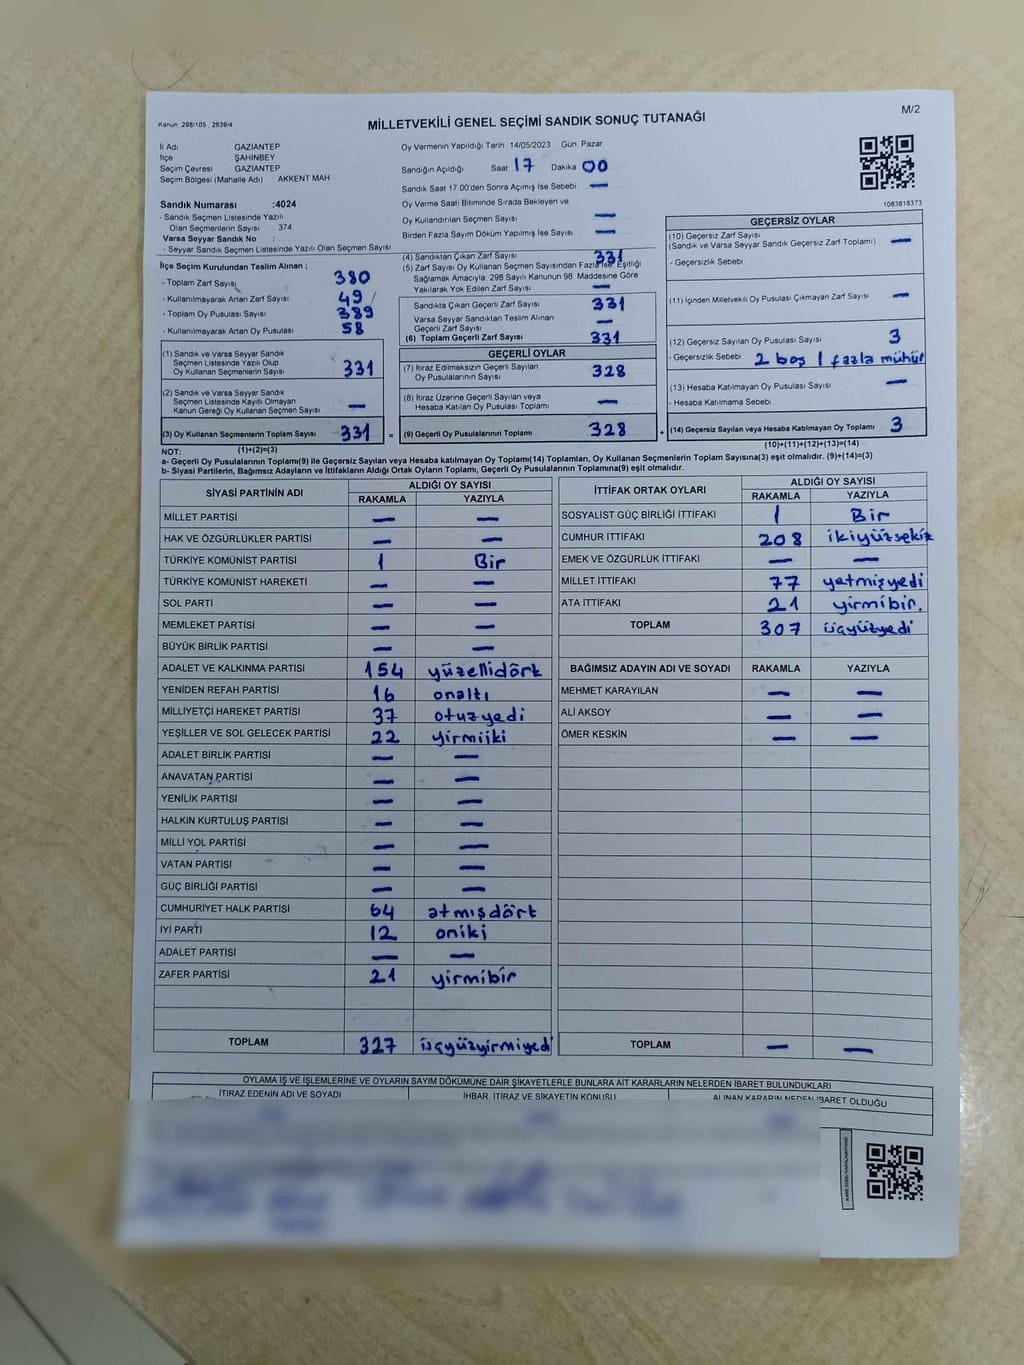 M/2
Kanun: 298/105 , 2839/4
MİLLETVEKİLİ GENEL SEÇİMİ SANDIK SONUÇ TUTANAĞI
İl Adı GAZİANTEP
İlçe ŞAHİNBEY
Seçim Çevresi GAZİANTEP
Seçim Bölgesi (Mahalle Adı) AKKENT MAH
Sandık Numarası :4024
- Sandık Seçmen Listesinde Yazılı
Olan Seçmenlerin Sayısı 374
Varsa Seyyar Sandık No :
- Seyyar Sandık Seçmen Listesinde Yazılı Olan Seçmen Sayısı
Oy Vermenin Yapıldığı Tarih 14/05/2023 Gün Pazar
Sandığın Açıldığı Saat 17 Dakika 00
Sandık Saat 17 00'den Sonra Açımış İse Sebebi —
Oy Verme Saati Bitiminde Sırada Bekleyen ve
Oy Kullandırılan Seçmen Sayısı —
Birden Fazla Sayım Döküm Yapılmış İse Sayısı —
1083818373
İlçe Seçim Kurulundan Teslim Alınan :
- Toplam Zarf Sayısı 380
- Kullanılmayarak Artan Zarf Sayısı 49
- Toplam Oy Pusulası Sayısı 389
- Kullanılmayarak Artan Oy Pusulası 58
(1) Sandık ve Varsa Seyyar Sandık
Seçmen Listesinde Yazılı Olup
Oy Kullanan Seçmenlerin Sayısı 331
(2) Sandık ve Varsa Seyyar Sandık
Seçmen Listesinde Kayıtlı Olmayan
Kanun Gereği Oy Kullanan Seçmen Sayısı —
(3) Oy Kullanan Seçmenlerin Toplam Sayısı 331 =
(1)+(2)=(3)
(4) Sandıktan Çıkan Zarf Sayısı 331
(5) Zarf Sayısı Oy Kullanan Seçmen Sayısından Fazla İse, Eşitliği
Sağlamak Amacıyla 298 Sayılı Kanunun 98. Maddesine Göre
Yakılarak Yok Edilen Zarf Sayısı —
Sandıkta Çıkan Geçerli Zarf Sayısı 331
Varsa Seyyar Sandıktan Teslim Alınan
Geçerli Zarf Sayısı —
(6) Toplam Geçerli Zarf Sayısı 331
GEÇERLİ OYLAR
(7) İtiraz Edilmeksizin Geçerli Sayılan
Oy Pusulalarının Sayısı 328
(8) İtiraz Üzerine Geçerli Sayılan veya
Hesaba Katılan Oy Pusulası Toplamı —
(9) Geçerli Oy Pusulalarının Toplamı 328 +
GEÇERSİZ OYLAR
(10) Geçersiz Zarf Sayısı —
(Sandık ve Varsa Seyyar Sandık Geçersiz Zarf Toplamı)
- Geçersizlik Sebebi
(11) İçinden Milletvekili Oy Pusulası Çıkmayan Zarf Sayısı —
(12) Geçersiz Sayılan Oy Pusulası Sayısı 3
- Geçersizlik Sebebi 2 boş 1 fazla mühür
(13) Hesaba Katılmayan Oy Pusulası Sayısı —
- Hesaba Katılmama Sebebi
(14) Geçersiz Sayılan veya Hesaba Katılmayan Oy Toplamı 3
(10)+(11)+(12)+(13)=(14)
NOT:
a- Geçerli Oy Pusulalarının Toplamı(9) ile Geçersiz Sayılan veya Hesaba katılmayan Oy Toplamı(14) Toplamları, Oy Kullanan Seçmenlerin Toplam Sayısına(3) eşit olmalıdır. (9)+(14)=(3)
b- Siyasi Partilerin, Bağımsız Adayların ve İttifakların Aldığı Ortak Oyların Toplamı, Geçerli Oy Pusulalarının Toplamına(9) eşit olmalıdır.
SİYASİ PARTİNİN ADI ALDIĞI OY SAYISI
RAKAMLA YAZIYLA
MİLLET PARTİSİ — —
HAK VE ÖZGÜRLÜKLER PARTİSİ — —
TÜRKİYE KOMÜNİST PARTİSİ 1 Bir
TÜRKİYE KOMÜNİST HAREKETİ — —
SOL PARTİ — —
MEMLEKET PARTİSİ — —
BÜYÜK BİRLİK PARTİSİ — —
ADALET VE KALKINMA PARTİSİ 154 yüzellidört
YENİDEN REFAH PARTİSİ 16 onaltı
MİLLİYETÇİ HAREKET PARTİSİ 37 otuzyedi
YEŞİLLER VE SOL GELECEK PARTİSİ 22 yirmiiki
ADALET BİRLİK PARTİSİ — —
ANAVATAN PARTİSİ — —
YENİLİK PARTİSİ — —
HALKIN KURTULUŞ PARTİSİ — —
MİLLİ YOL PARTİSİ — —
VATAN PARTİSİ — —
GÜÇ BİRLİĞİ PARTİSİ — —
CUMHURİYET HALK PARTİSİ 64 atmışdört
İYİ PARTİ 12 oniki
ADALET PARTİSİ — —
ZAFER PARTİSİ 21 yirmibir
TOPLAM 327 üçyüzyirmiyedi
İTTİFAK ORTAK OYLARI ALDIĞI OY SAYISI
RAKAMLA YAZIYLA
SOSYALİST GÜÇ BİRLİĞİ İTTİFAKI 1 Bir
CUMHUR İTTİFAKI 208 ikiyüzsekiz
EMEK VE ÖZGÜRLÜK İTTİFAKI — —
MİLLET İTTİFAKI 77 yetmişyedi
ATA İTTİFAKI 21 yirmibir.
TOPLAM 307 üçyüzyedi
BAĞIMSIZ ADAYIN ADI VE SOYADI RAKAMLA YAZIYLA
MEHMET KARAYILAN — —
ALİ AKSOY — —
ÖMER KESKİN — —
TOPLAM — —
OYLAMA İŞ VE İŞLEMLERİNE VE OYLARIN SAYIM DÖKÜMÜNE DAİR ŞİKAYETLERLE BUNLARA AİT KARARLARIN NELERDEN İBARET BULUNDUKLARI
İTİRAZ EDENİN ADI VE SOYADI İHBAR, İTİRAZ VE ŞİKAYETİN KONUSU ALINAN KARARIN NEDEN İBARET OLDUĞU